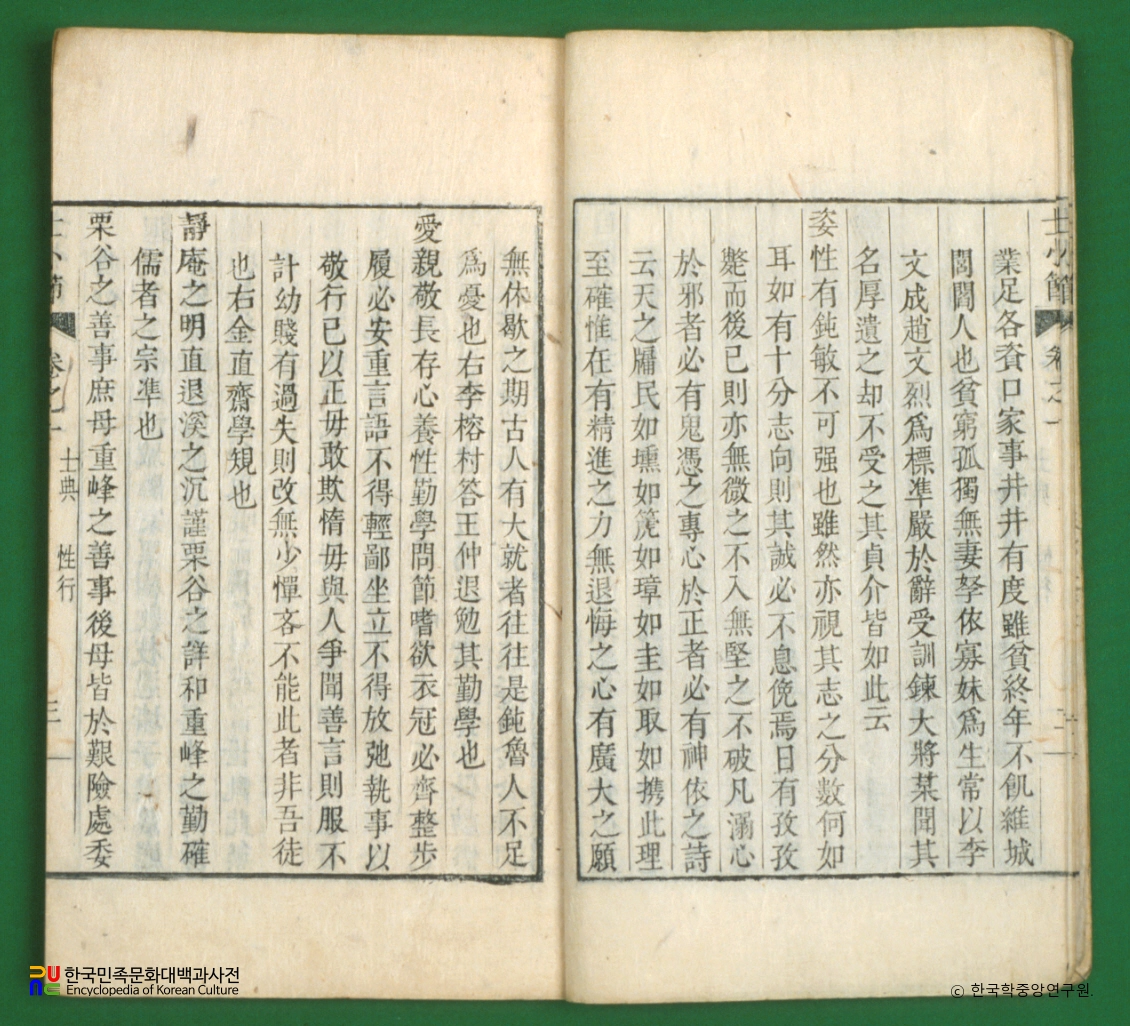 士小節 卷之一 二
業足各資口家事井井有度雖貧終年不飢維城
閭閻人也貧窮孤獨無妻孥依寡妹爲生常以李
文成趙文烈爲標準嚴於辭受訓鍊大將某聞其
名厚遺之却不受之其貞介皆如此云
姿性有鈍敏不可强也雖然亦視其志之分數何如
耳如有十分志向則其誠必不息俛焉日有孜孜
斃而後已則亦無微之不入無堅之不破凡溺心
於邪者必有鬼憑之專心於正者必有神依之詩
云天之牖民如壎如篪如璋如圭如取如携此理
至確惟在有精進之力無退悔之心有廣大之願
無休歇之期古人有大就者往往是鈍魯人不足
爲憂也右李榕村答王仲退勉其勤學也
愛親敬長存心養性勤學問節嗜欲衣冠必齊整步
履必安重言語不得輕鄙坐立不得放弛執事以
敬行已以正毋敢欺惰毋與人爭聞善言則服不
計幼賤有過失則改無少憚吝不能此者非吾徒
也右金直齋學規也
靜庵之明直退溪之沉謹栗谷之詳和重峰之勤確
儒者之宗準也
栗谷之善事庶母重峰之善事後母皆於艱險處委
士小節 卷之一 士典 性行 三
한국민족문화대백과사전
Encyclopedia of Korean Culture
ⓒ 한국학중앙연구원.